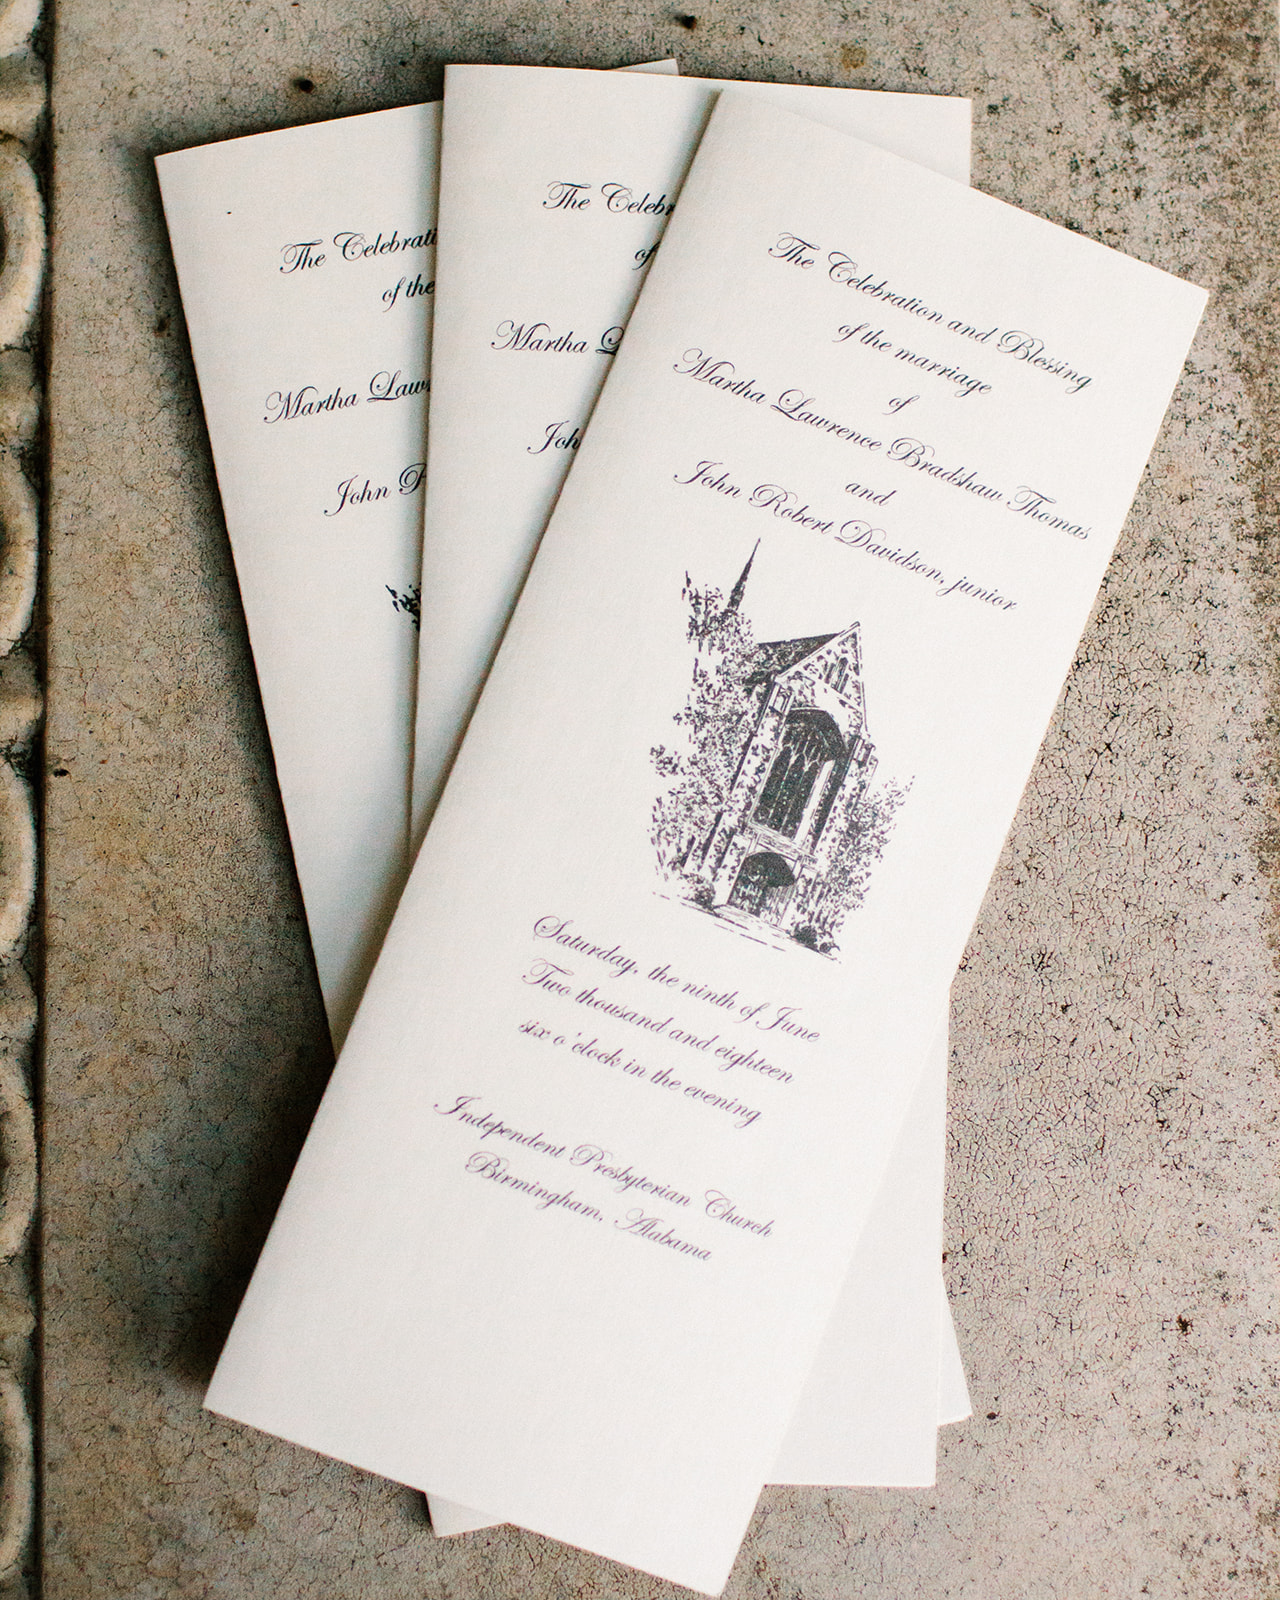 The Celebrati
of the
Martha Law
John R
The Celebr
of
Martha L
Joh
The Celebration and Blessing
of the marriage
of
Martha Lawrence Bradshaw Thomas
and
John Robert Davidson, junior
Saturday, the ninth of June
Two thousand and eighteen
six o'clock in the evening
Independent Presbyterian Church
Birmingham, Alabama